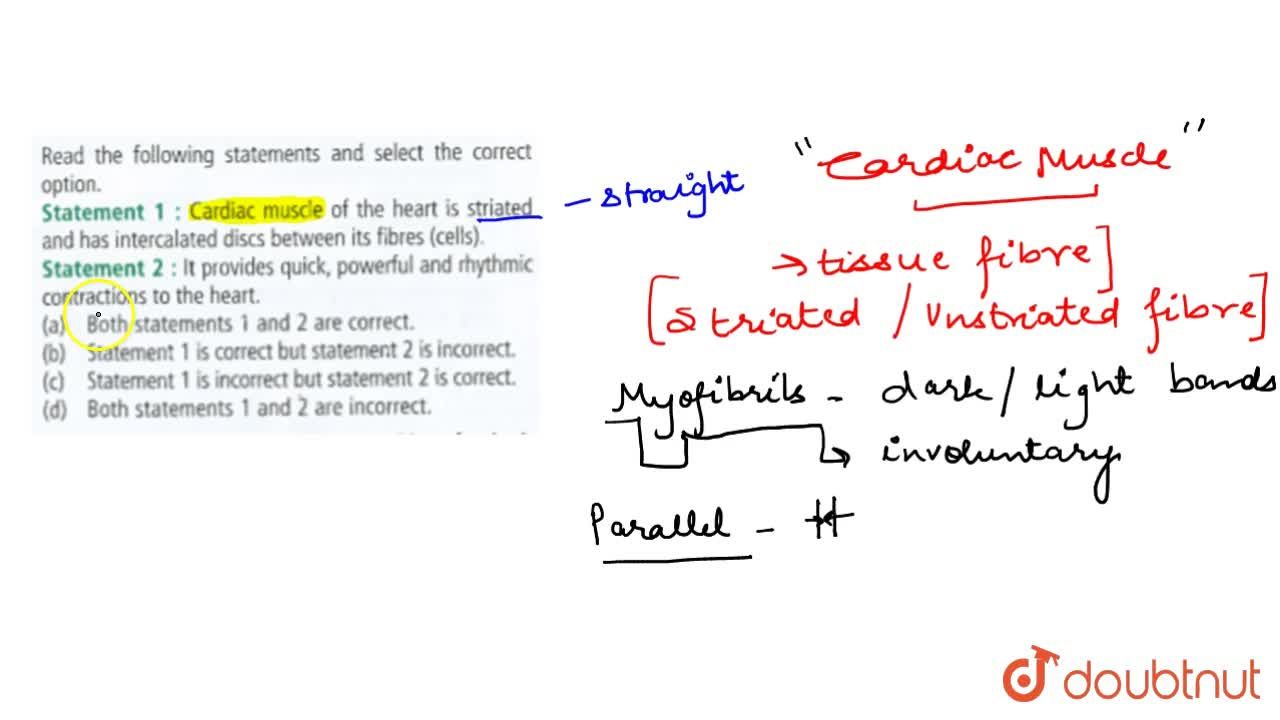 Read the following statements and select the correct
option.
Statement 1 : Cardiac muscle of the heart is striated
and has intercalated discs between its fibres (cells).
Statement 2 : It provides quick, powerful and rhythmic
contractions to the heart.
(a) Both statements 1 and 2 are correct.
(b) Statement 1 is correct but statement 2 is incorrect.
(c) Statement 1 is incorrect but statement 2 is correct.
(d) Both statements 1 and 2 are incorrect.
- straight
"Cardiac Muscle"
→ tissue fibre]
[Striated / Unstriated fibre]
Myofibrils - dark / light bands
→ involuntary
Parallel -
doubtnut